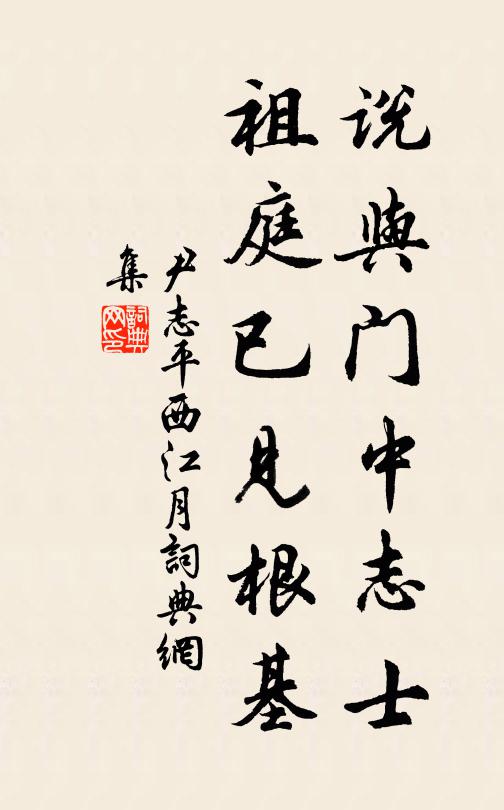 说與门中志士
祖庭已见根基
尹志平西江月詞典網
集
詞典
网印